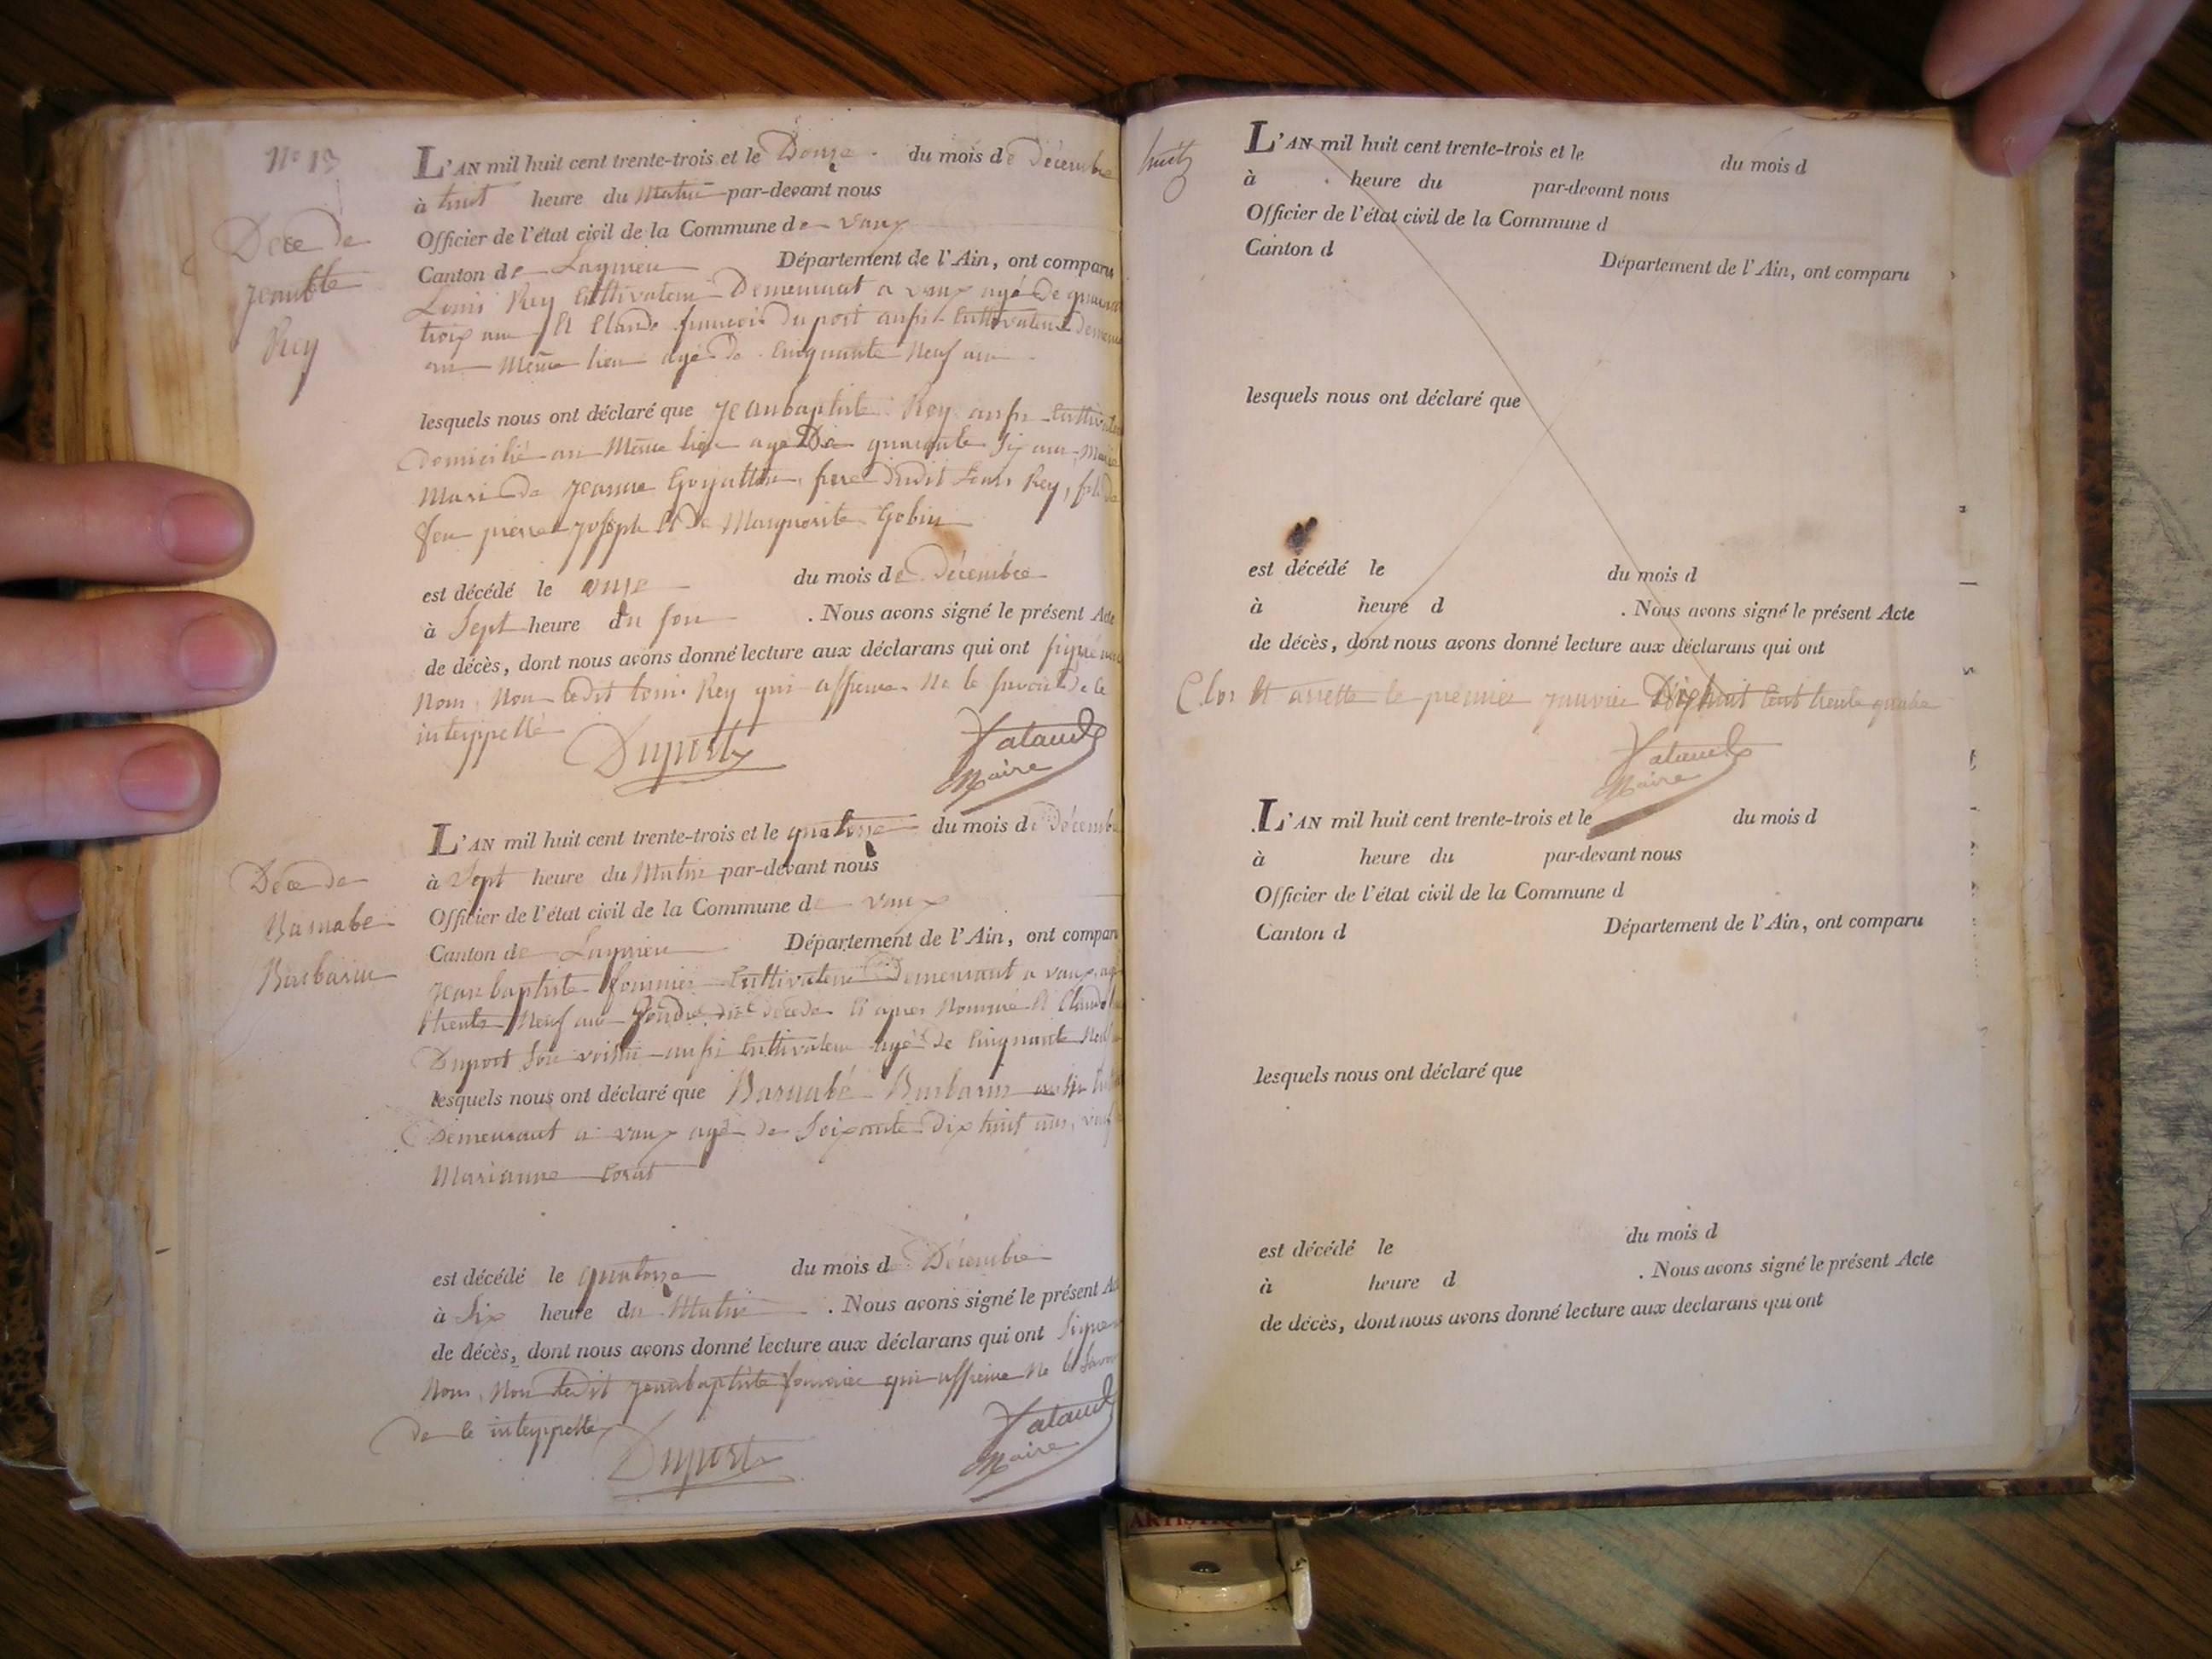 N° 13
Dece de
Jean Bte
Rey
L'AN mil huit cent trente-trois et le Douze du mois de Décembre
à huit heure du Matin par-devant nous
Officier de l'état civil de la Commune de Vaux
Canton de Lagnieu Département de l'Ain, ont comparu
Louis Rey Cultivateur Demeurant a vaux agé De
troix ans Et Claude francois duport aussi Cultivateur
au Même lieu agé De Cinquante Neuf ans
lesquels nous ont déclaré que Jeanbaptiste Rey aussi
Domicilié au Même lieu agé De quarante Six ans
Mari de Jeanne frere dudit Louis Rey, fils de
feu pierre Joseph Et De Marguerite Gobin
est décédé le onze du mois de Décembre
à Sept heure du soir . Nous avons signé le présent Acte
de décès, dont nous avons donné lecture aux déclarans qui ont signé avec
Nous, Non ledit Louis Rey qui affirme Ne le savoir de ce
interppellé
Duport
Mataud
Maire
Dece de
Barnabe
Barbarin
L'AN mil huit cent trente-trois et le quatorze du mois de Décembre
à Sept heure du Matin par-devant nous
Officier de l'état civil de la Commune de vaux
Canton de Lagnieu Département de l'Ain, ont comparu
Jean baptiste fournier Cultivateur Demeurant a vaux, agé
trente Neuf ans Gendre du décédé Ci apres Nommé Et Claude
Duport Son voisin aussi Cultivateur agé De Cinquante Neuf
lesquels nous ont déclaré que Barnabé Barbarin aussi
Demeurant a vaux agé de Soixante Dix huit ans, veuf
Marianne Corat
est décédé le quatorze du mois de Décembre
à Six heure du Matin . Nous avons signé le présent Acte
de décès, dont nous avons donné lecture aux déclarans qui ont Signé
Nous, Non ledit Jeanbaptiste fournier qui affirme Ne le Savoir
de ce interppellé
Duport
Mataud
Maire
huit
L'AN mil huit cent trente-trois et le du mois d
à heure du par-devant nous
Officier de l'état civil de la Commune d
Canton d Département de l'Ain, ont comparu
lesquels nous ont déclaré que
est décédé le du mois d
à heure d . Nous avons signé le présent Acte
de décès, dont nous avons donné lecture aux déclarans qui ont
Clos Et arretté le premier janvier Dixhuit Cent trente quatre
Mataud
Maire
L'AN mil huit cent trente-trois et le du mois d
à heure du par-devant nous
Officier de l'état civil de la Commune d
Canton d Département de l'Ain, ont comparu
lesquels nous ont déclaré que
est décédé le du mois d
à heure d . Nous avons signé le présent Acte
de décès, dont nous avons donné lecture aux declarans qui ont
ARTISTIQUE